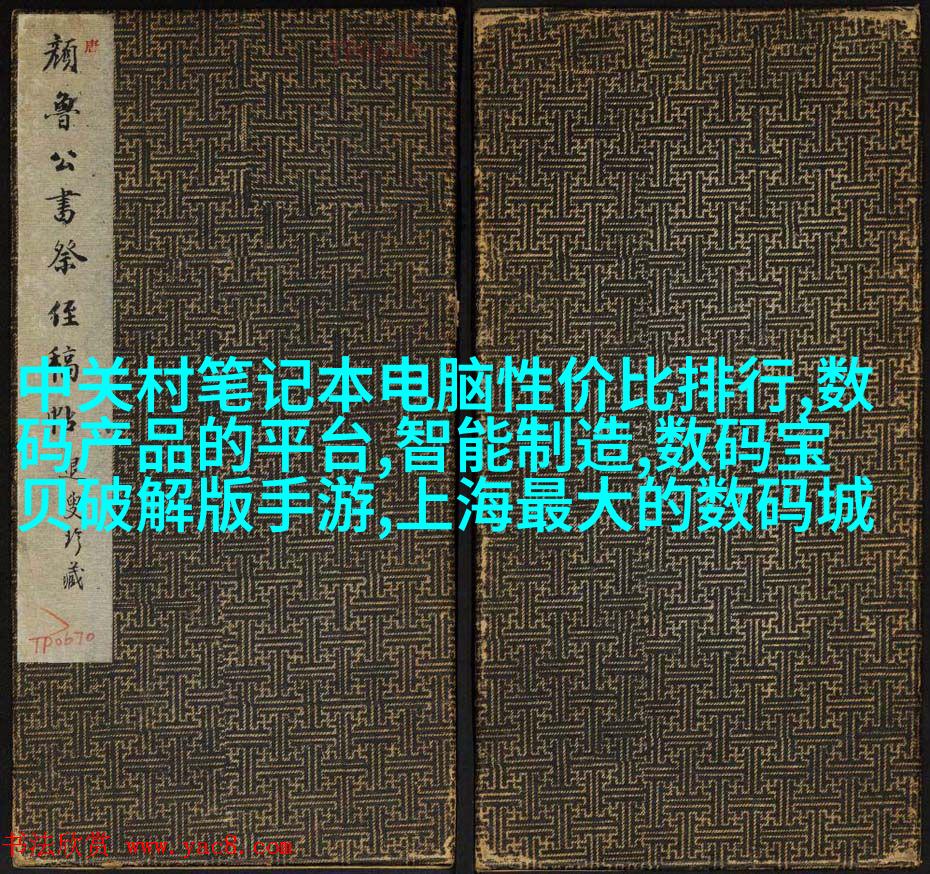 唐
颜鲁公书祭侄稿
TP0670
中关村笔记本电脑性价比排行,数
码产品的平台,智能制造,数码宝
贝破解版手游,上海最大的数码城
书法欣赏 www.yac8.com